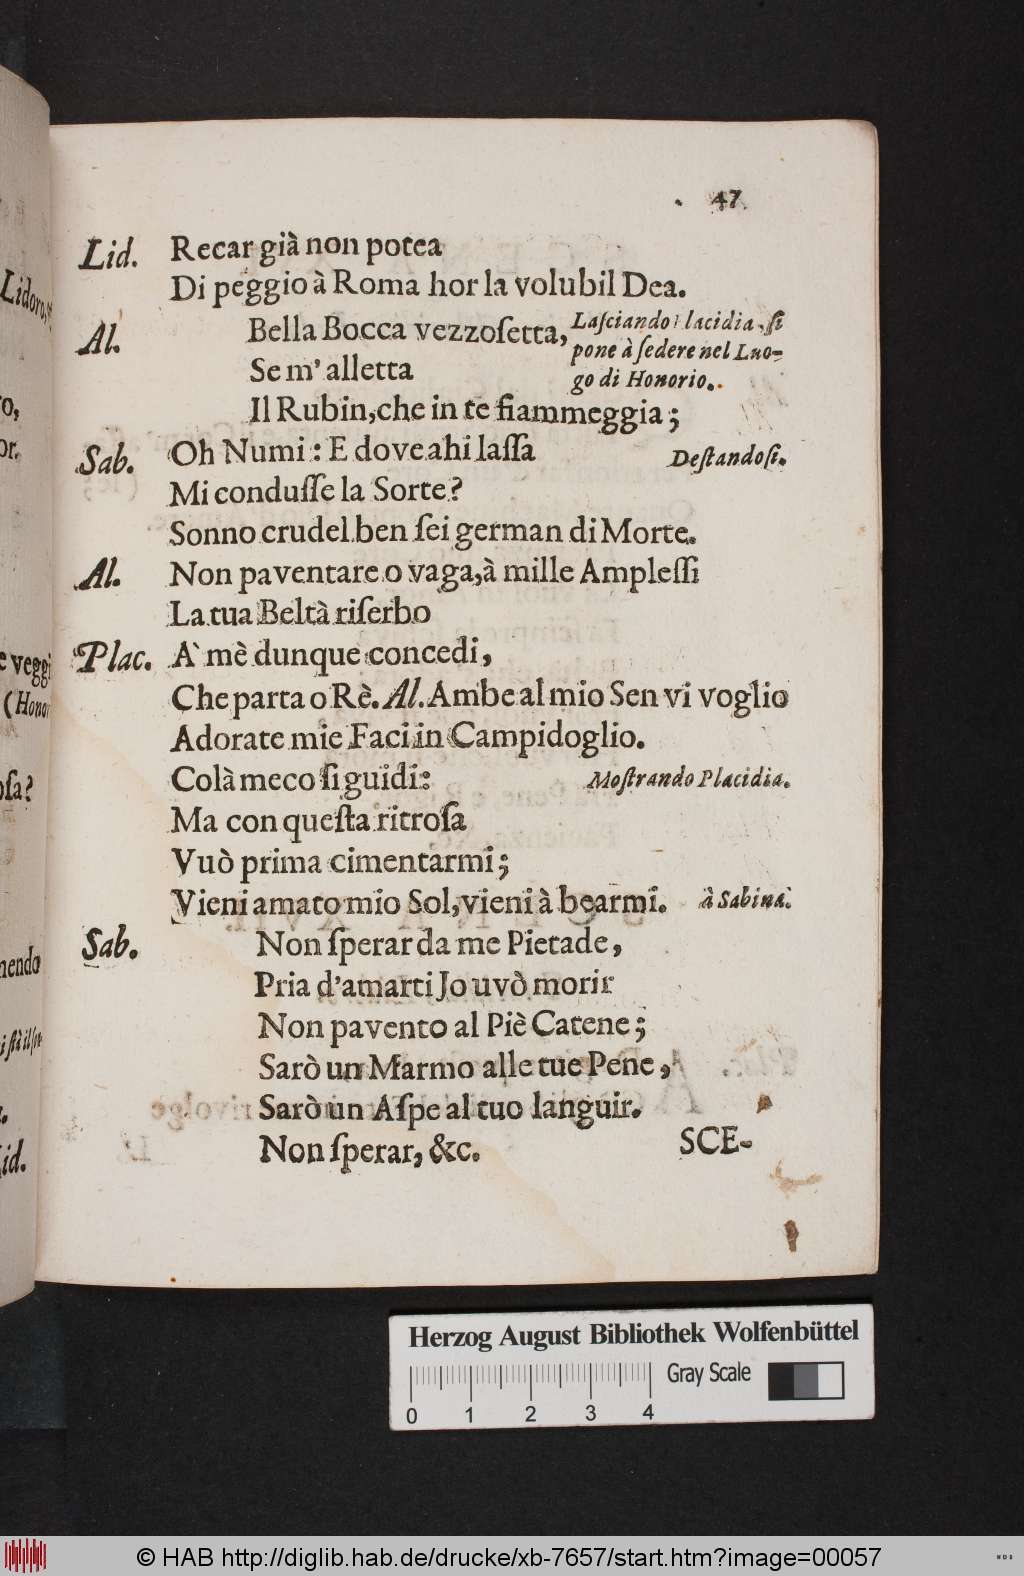 47
Lid. Recar già non potea
Di peggio à Roma hor la volubil Dea.
Al. Bella Bocca vezzoſetta, Laſciando lacidia ſi
pone à ſedere nel Luo-
Se m' alletta
go di Honorio.
Il Rubin, che in te fiammeggia;
Sab. Oh Numi: E dove ahi laſſa Deſtandoſi.
Mi conduſſe la Sorte?
Sonno crudel ben ſei german di Morte.
Al. Non paventare o vaga, à mille Ampleſſi
La tua Beltà riſerbo
Plac. A' mè dunque concedi,
Che parta o Rè. Al. Ambe al mio Sen vi voglio
Adorate mie Faci in Campidoglio.
Colà meco ſi guidi: Moſtrando Placidia.
Ma con queſta ritroſa
Vuò prima cimentarmi;
Vieni amato mio Sol, vieni à bearmi. à Sabina.
Sab. Non ſperar da me Pietade,
Pria d'amarti Jo uvò morir
Non pavento al Piè Catene;
Sarò un Marmo alle tue Pene,
Sarò un Aſpe al tuo languir.
Non ſperar, &c. SCE-
Lidoro,
ro,
or.
e veggi
(Honor
oſa?
nendo
i ſtà il ſon
id.
Herzog August Bibliothek Wolfenbüttel
Gray Scale
0 1 2 3 4
© HAB http://diglib.hab.de/drucke/xb-7657/start.htm?image=00057